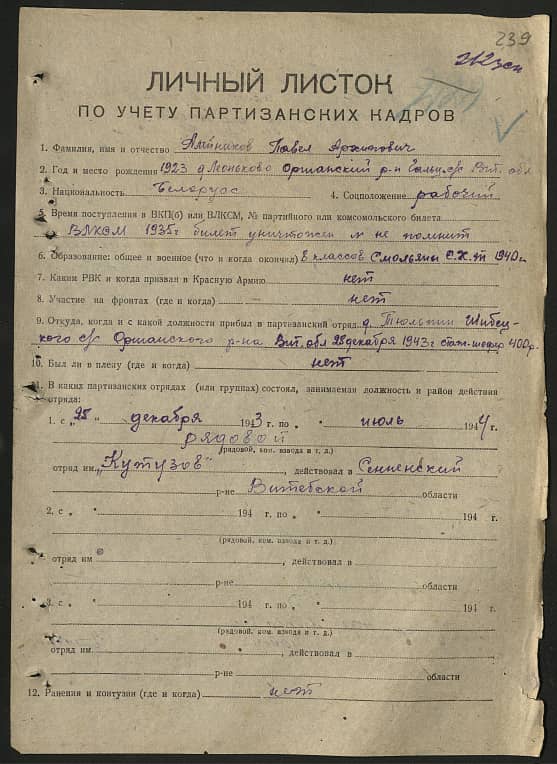 239
ЛИЧНЫЙ ЛИСТОК
ПО УЧЕТУ ПАРТИЗАНСКИХ КАДРОВ
1. Фамилия, имя и отчество Павел Архипович
2. Год и место рождения 1923 Оршанский р-н с/с Вит. обл
3. Национальность Белорус 4. Соцположение рабочий
5. Время поступления в ВКП(б) или ВЛКСМ, № партийного или комсомольского билета
ВЛКСМ 1935г билет уничтожен № не помнит
6. Образование: общее и военное (что и когда окончил) 8 классов Смольяны С.Х.т 1940г
7. Каким РВК и когда призван в Красную Армию нет
8. Участие на фронтах (где и когда) нет
9. Откуда, когда и с какой должности прибыл в партизанский отряд д. Тюльпин
кого с/с Оршанского р-на Вит. обл 25 декабря 1943г
10. Был ли в плену (где и когда) нет
11. В каких партизанских отрядах (или группах) состоял, занимаемая должность и район действия
отряда:
1. с „25" декабря 1943 г. по „ " июль 1944 г.
рядовой
(рядовой, ком. взвода и т. д.)
отряд им. "Кутузов", действовал в Сенненский
р-не Витебской области
2. с „ " 194 г. по „ " 194 г.
(рядовой, ком. взвода и т. д.)
отряд им , действовал в
р-не области
3. с „ " 194 г. по „ " 194 г.
(рядовой, ком. взвода и т. д.)
отряд им , действовал в
р-не области
12. Ранения и контузии (где и когда) нет